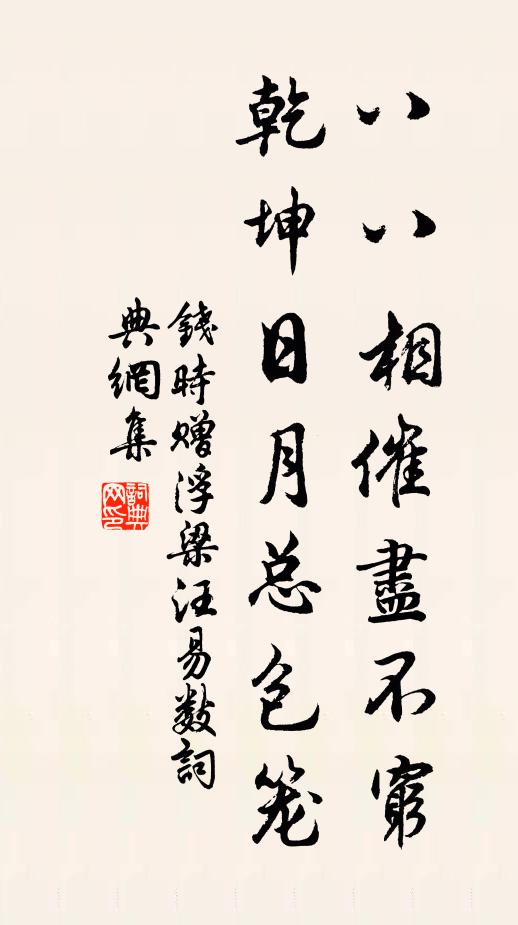 八八相催盡不窮
乾坤日月总包笼
錢時贈浮梁汪易数詞
典網集
詞典
网印